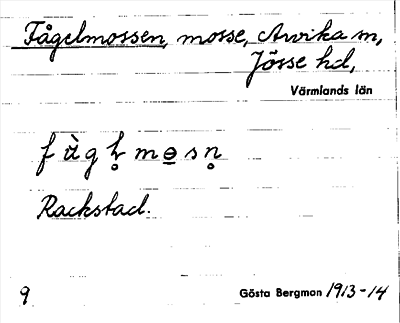 Fågelmossen, mosse, Arvika sn,
Jösse hd,
Värmlands län
Rackstad.
9 Gösta Bergman 1913-14